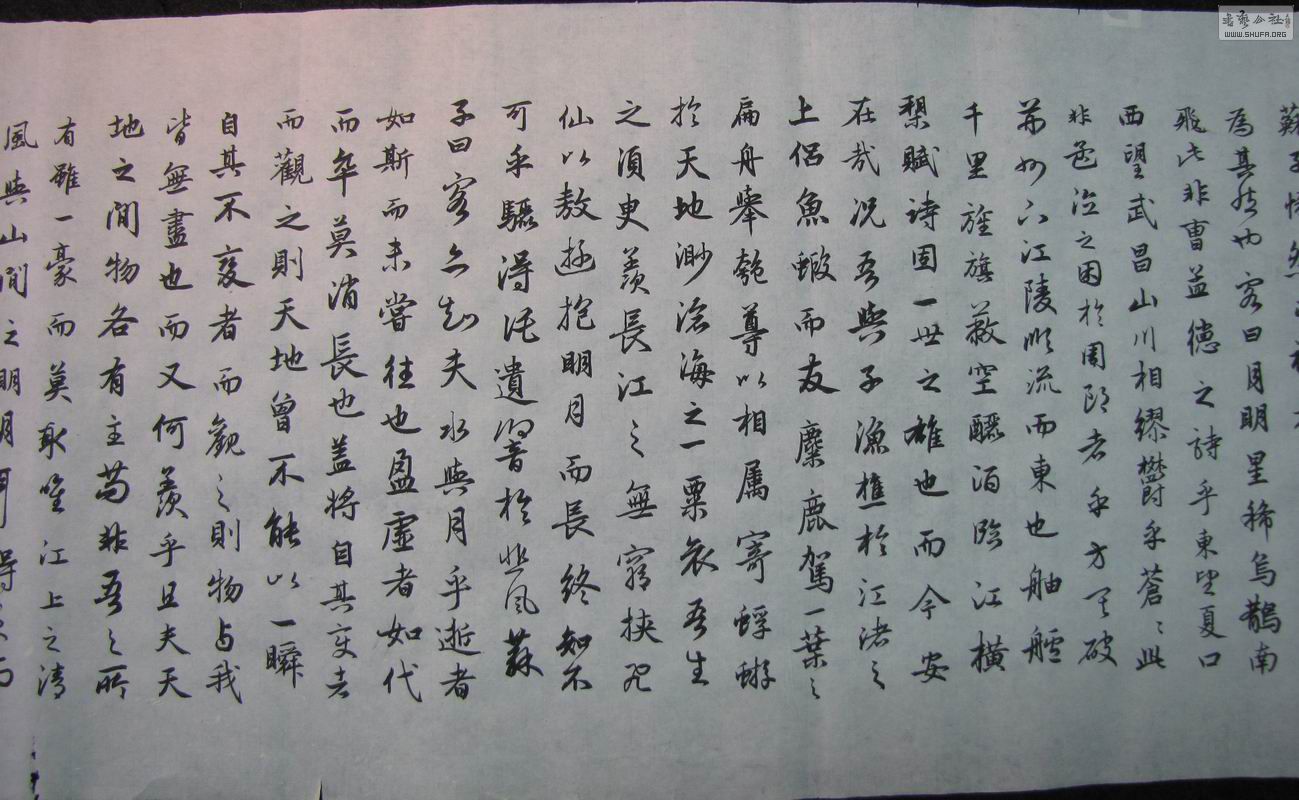 蘇子愀然正
為其然也客曰月明星稀烏鵲南
飛此非曹孟德之詩乎東望夏口
西望武昌山川相繆鬱乎蒼〻此
非孟德之困於周郎者乎方其破
荊州下江陵順流而東也舳艫
千里旌旗蔽空釃酒臨江橫
槊賦詩固一世之雄也而今安
在哉況吾與子漁樵於江渚之
上侶魚蝦而友麋鹿駕一葉之
扁舟舉匏尊以相屬寄蜉蝣
於天地渺滄海之一粟哀吾生
之須臾羨長江之無窮挾飛
仙以遨遊抱明月而長終知不
可乎驟得託遺響於悲風蘇
子曰客亦知夫水與月乎逝者
如斯而未嘗往也盈虛者如代
而卒莫消長也蓋將自其變者
而觀之則天地曾不能以一瞬
自其不變者而觀之則物与我
皆無盡也而又何羨乎且夫天
地之間物各有主苟非吾之所
有雖一豪而莫取唯江上之清
風與山間之明
書藝公社
WWW.SHUFA.ORG